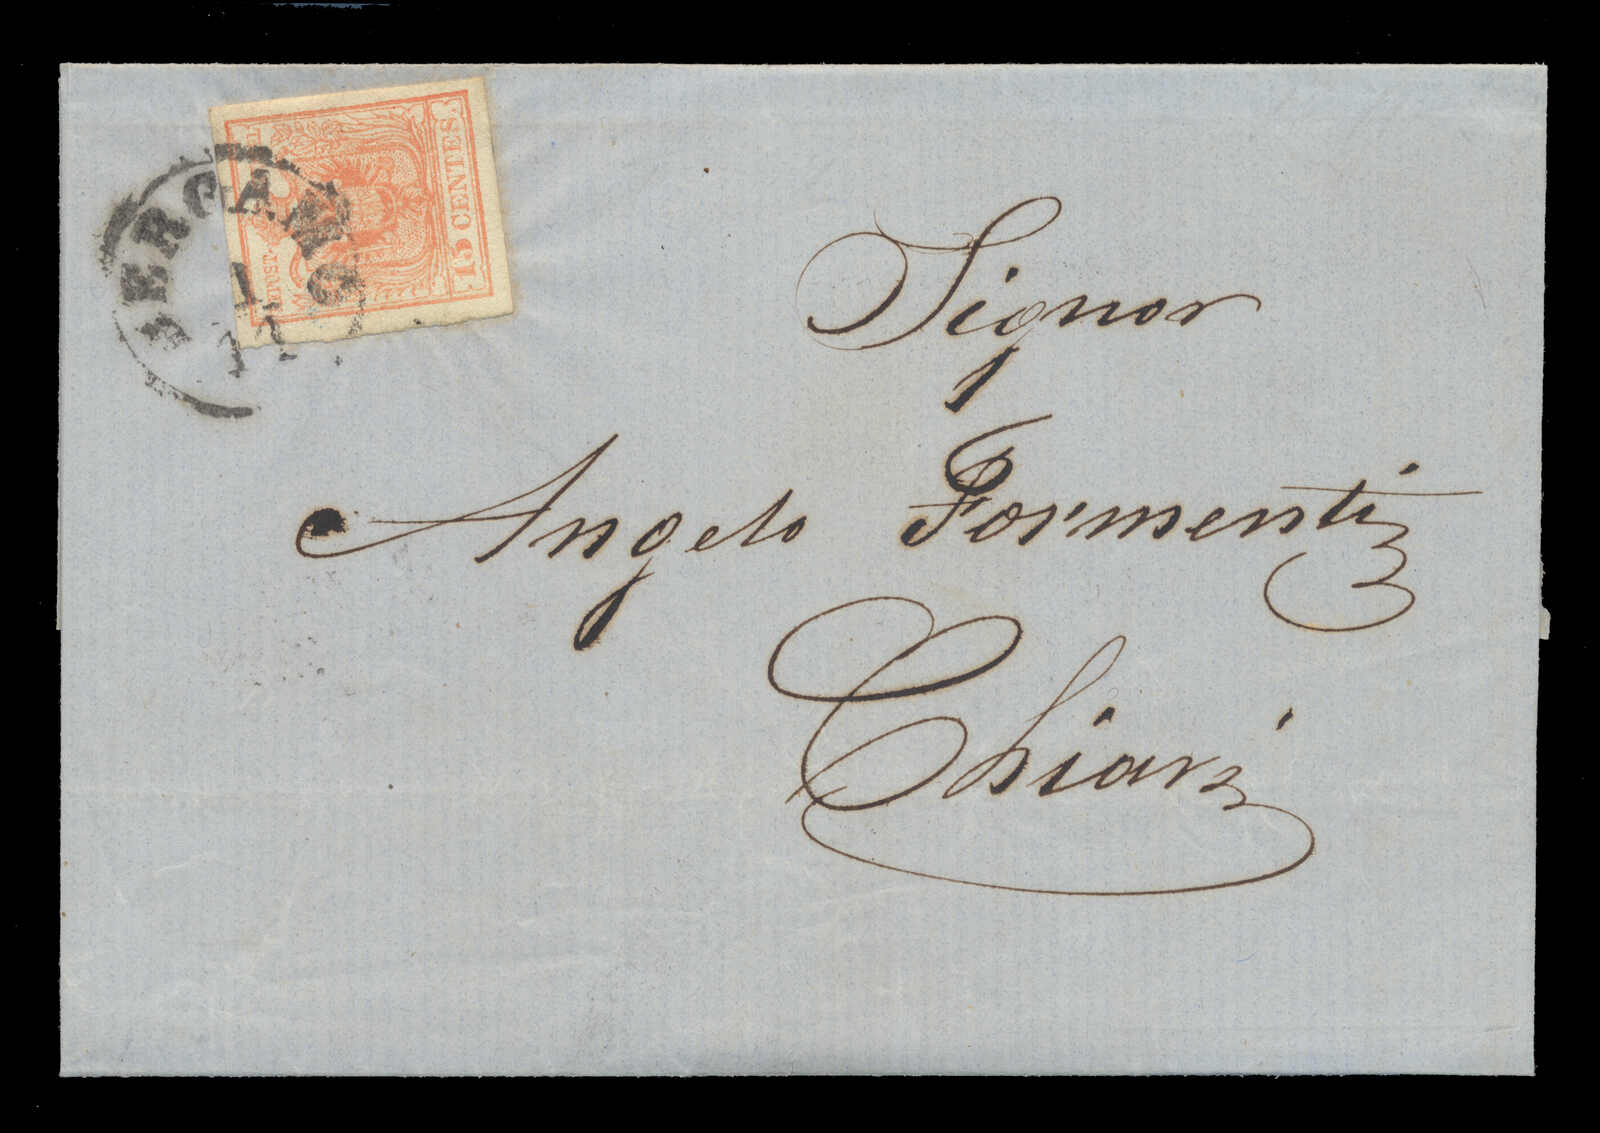 BERGAMO
1
11
KKPOST-
15 CENTES.
Signor
Angelo Formenti
Chiari